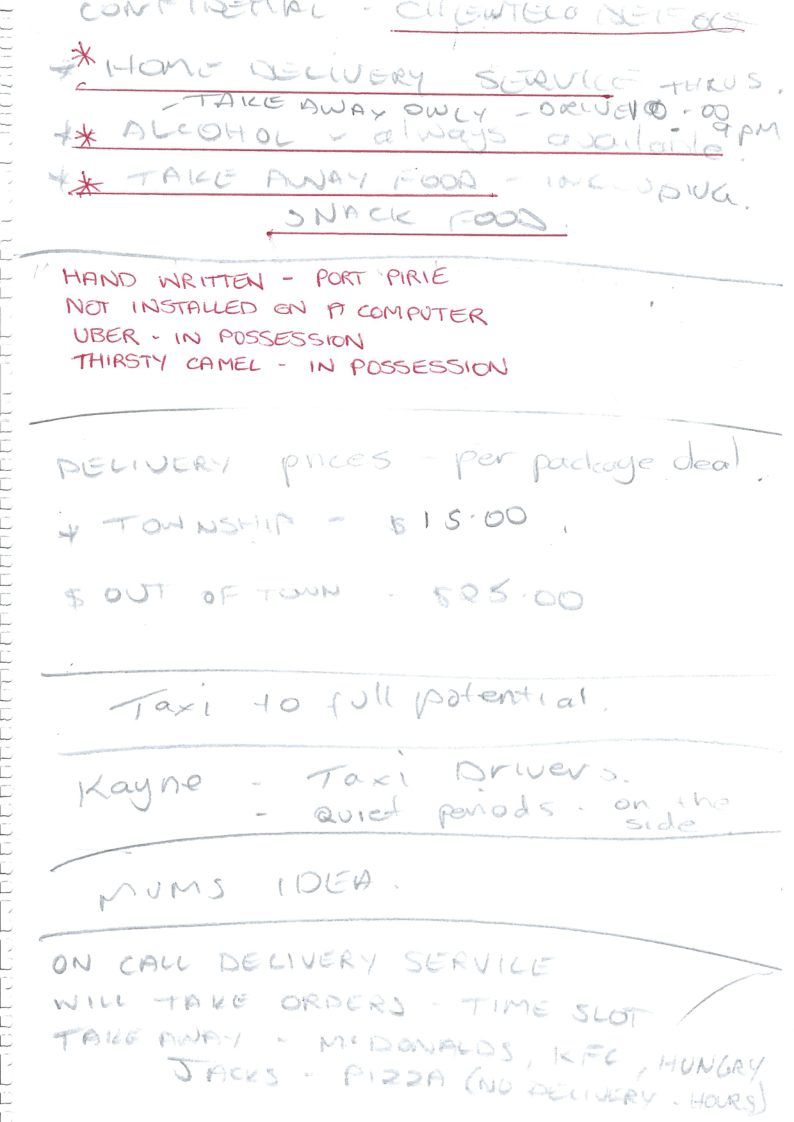 CONFIDENTIAL -
* HOME DELIVERY SERVICE THRUS.
- TAKE AWAY ONLY -
* ALCOHOL - always available. 9PM
* TAKE AWAY FOOD - INCLUDING.
SNACK FOOD.
HAND WRITTEN - PORT PIRIE
NOT INSTALLED ON A COMPUTER
UBER - IN POSSESSION
THIRSTY CAMEL - IN POSSESSION
DELIVERY prices - per package deal.
* TOWNSHIP - $15.00.
$ OUT OF TOWN - $25.00
Taxi to full potential.
Kayne - Taxi Drivers.
- Quiet periods - on the
side
MUMS IDEA.
ON CALL DELIVERY SERVICE
WILL TAKE ORDERS - TIME SLOT
TAKE AWAY - McDONALDS, KFC, HUNGRY
JACKS - PIZZA (NO DELIVERY - HOURS)